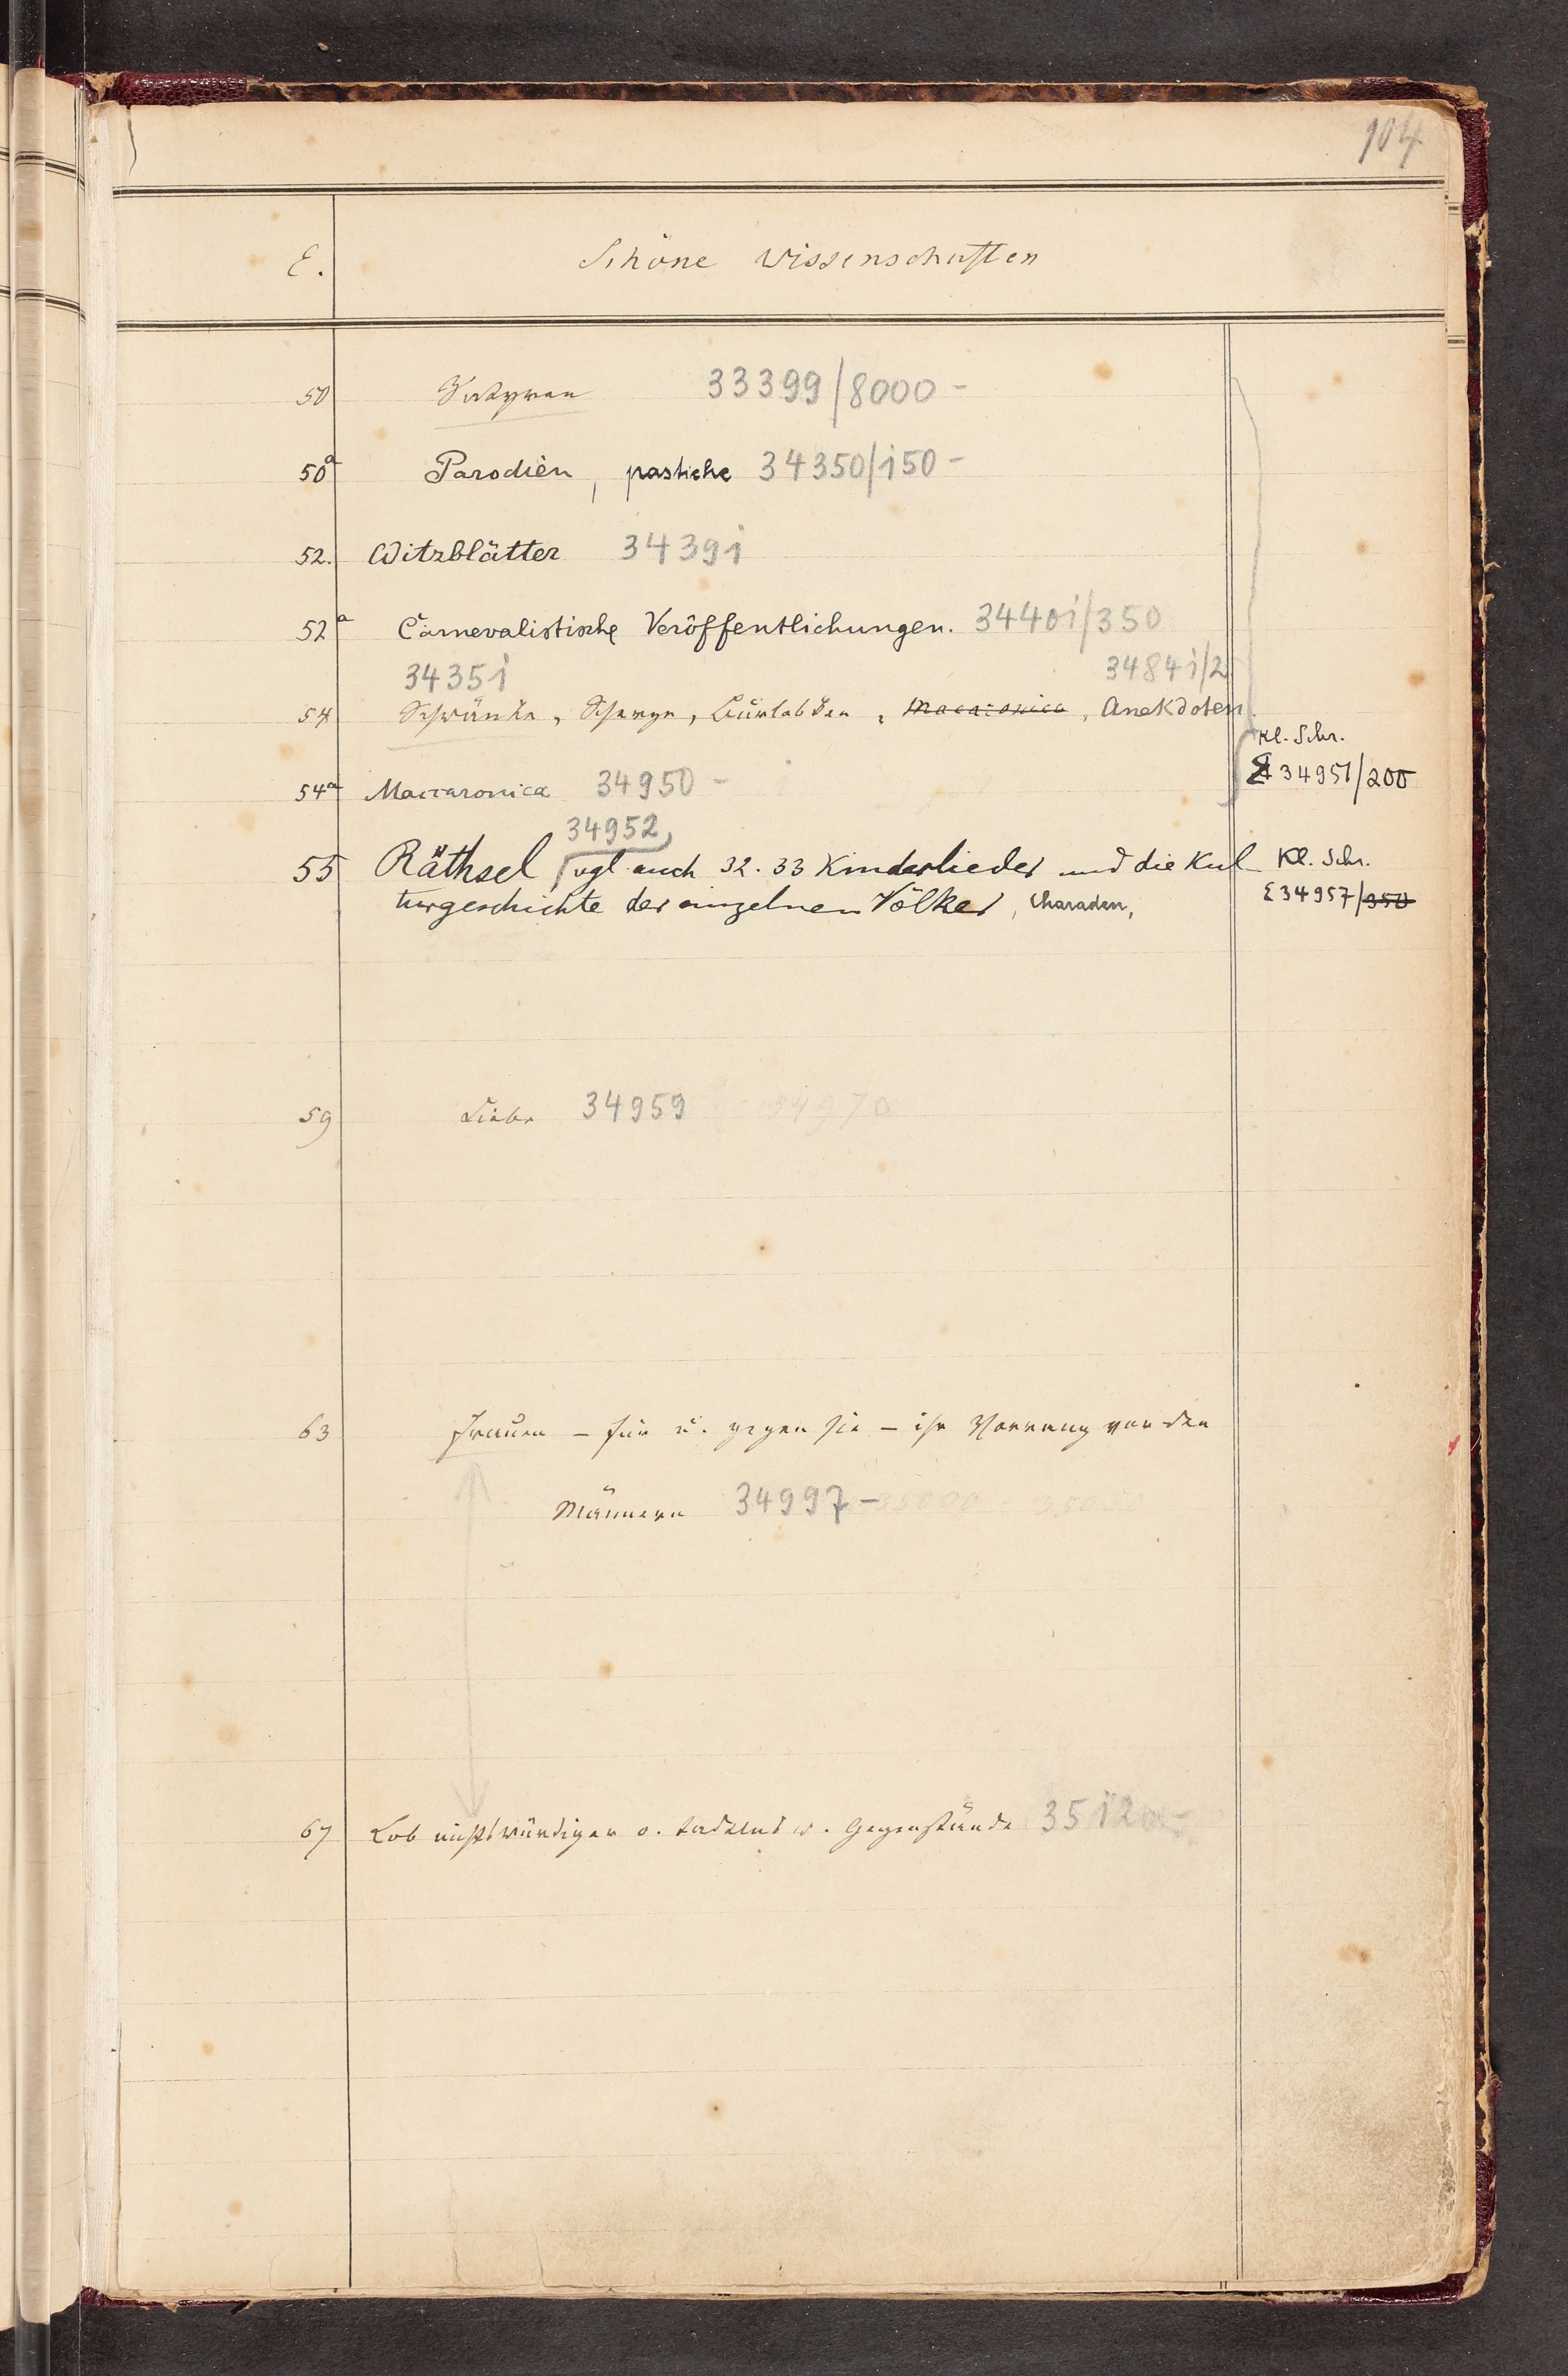 104
E. Schöne Wissenschaften
50 Satyren 33399/8000 -
50a Parodien, pastiche 34350/150 -
52. Witzblätter 34391
52a Carnevalistische Veröffentlichungen. 34401/350
34351 34841/2
54 Schwänke, Scherze, Burlesken, Macaronica, Anekdoten.
Kl. Schr.
54a Maccaronica 34950 - 34951/200
34952
55 Räthsel, vgl auch 32. 33 Kinderlieder und die Kul- Kl. Schr.
turgeschichte der einzelnen Völker, Charaden, E34957/350
59 Liebe 34959 34970
63 Frauen – für u. gegen sie – ihr Vorrang vor den
Männern 34997 - 35000
67 Lob nichtswürdiger o. tadelnsw. Gegenstände 35120 -